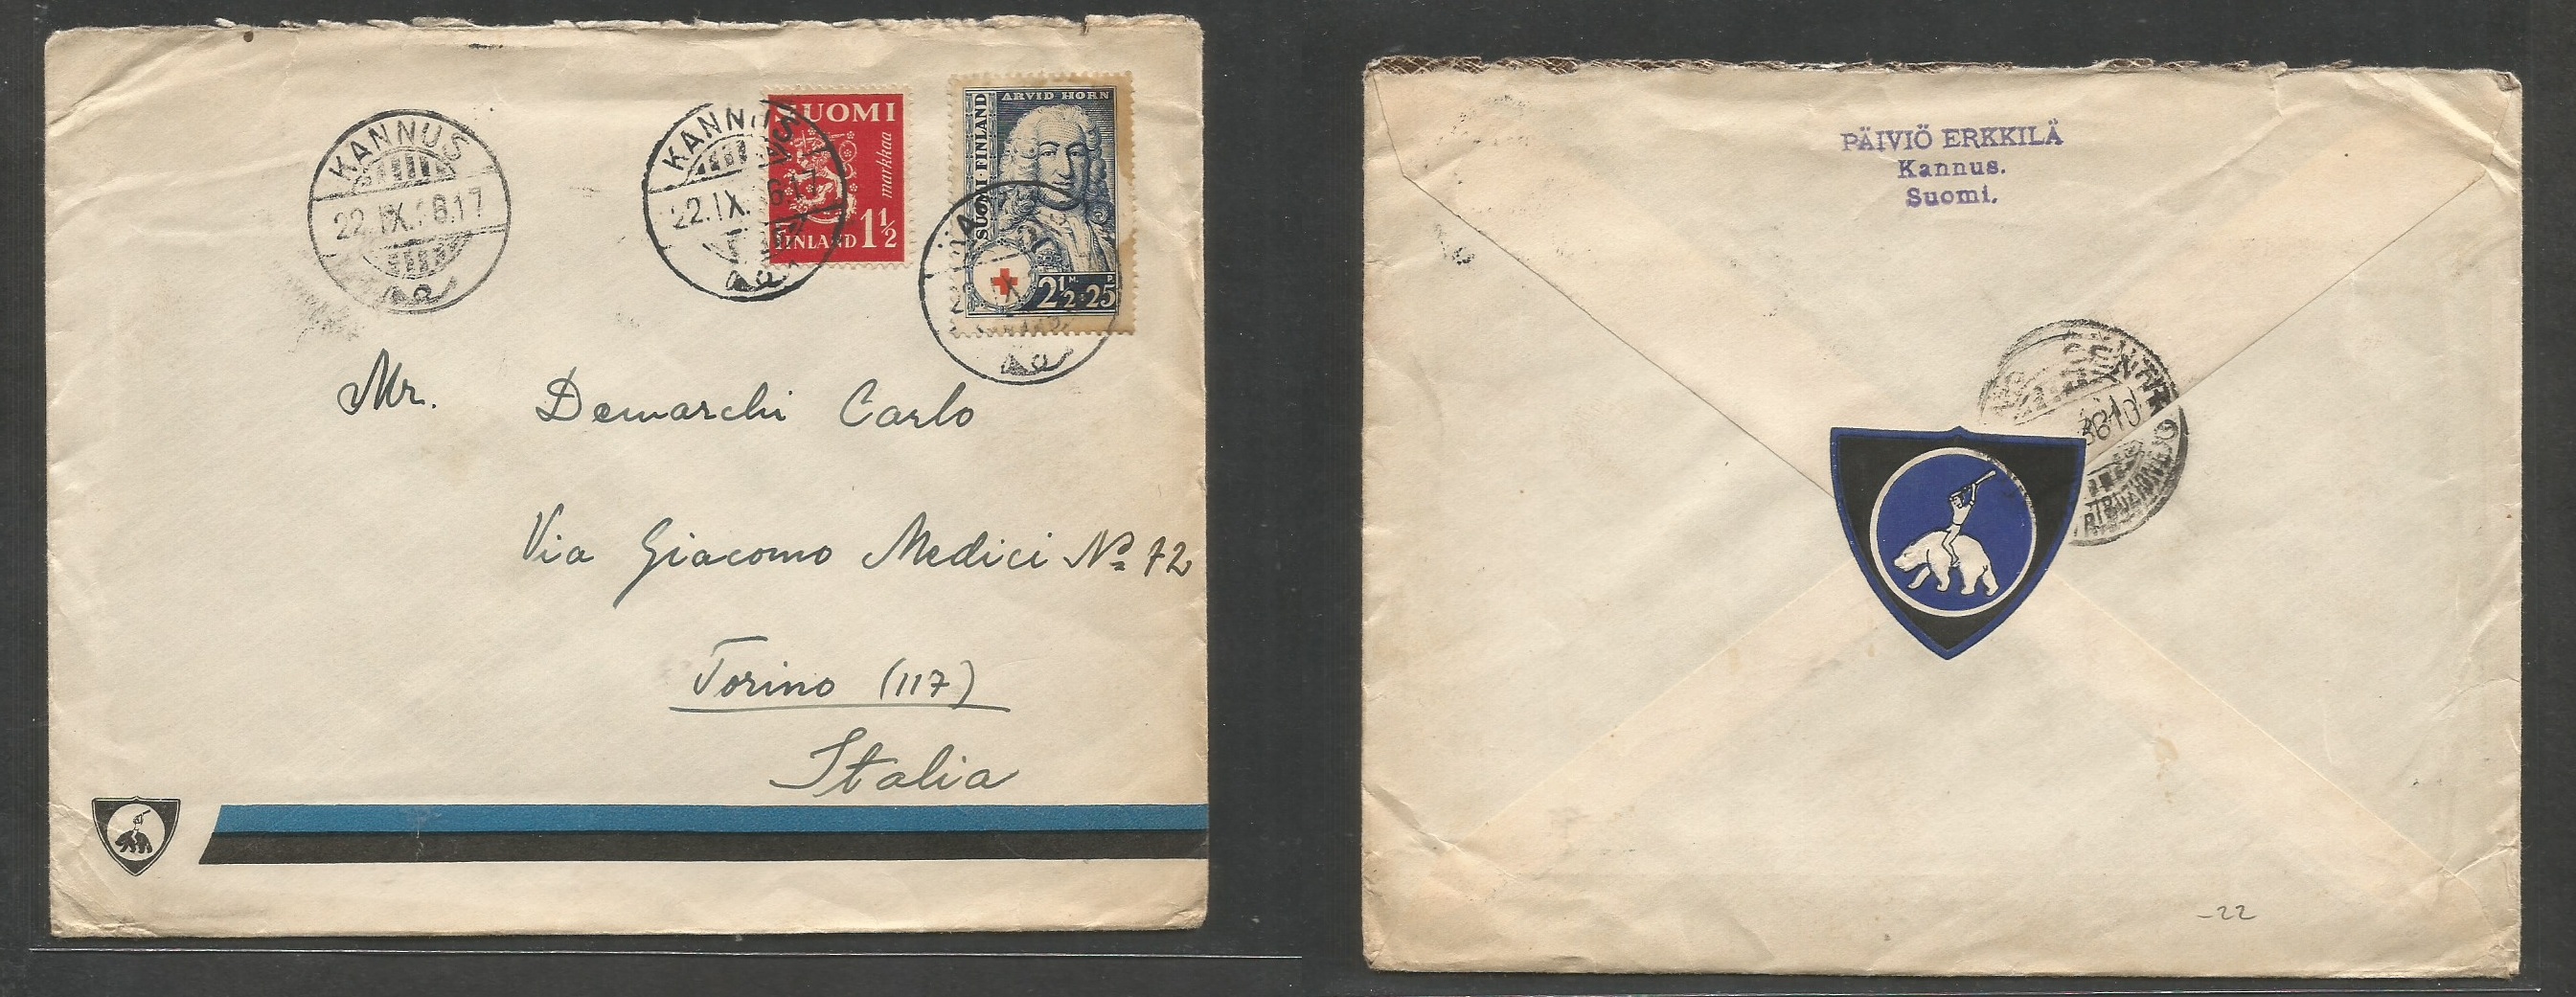 KANNUS
22.IX.36.17
KANNUS
22.IX.36.17
SUOMI
markkaa
FINLAND 1½
ARVID HORN
SUOMI·FINLAND
2½ M. + 25 P.
Mr. Demarchi Carlo
Via Giacomo Medici Nº 72
Torino (117)
Italia
PÄIVIÖ ERKKILÄ
Kannus.
Suomi.
-22